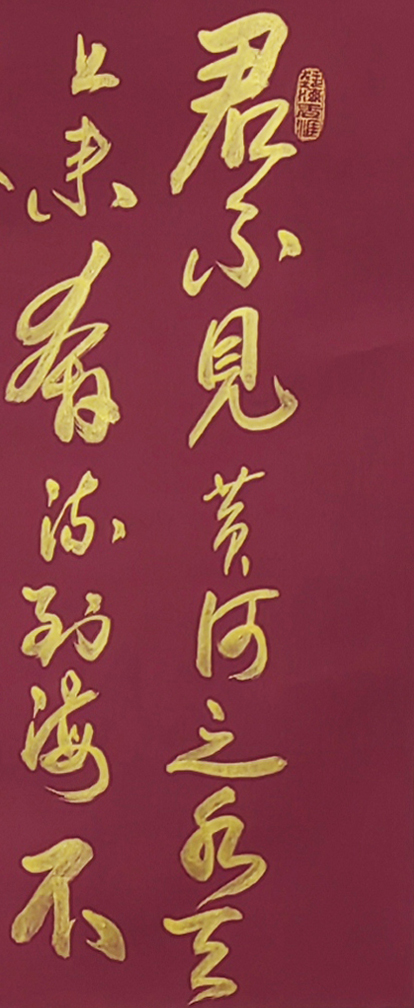 君不見黄河之水天
上来奔流到海不